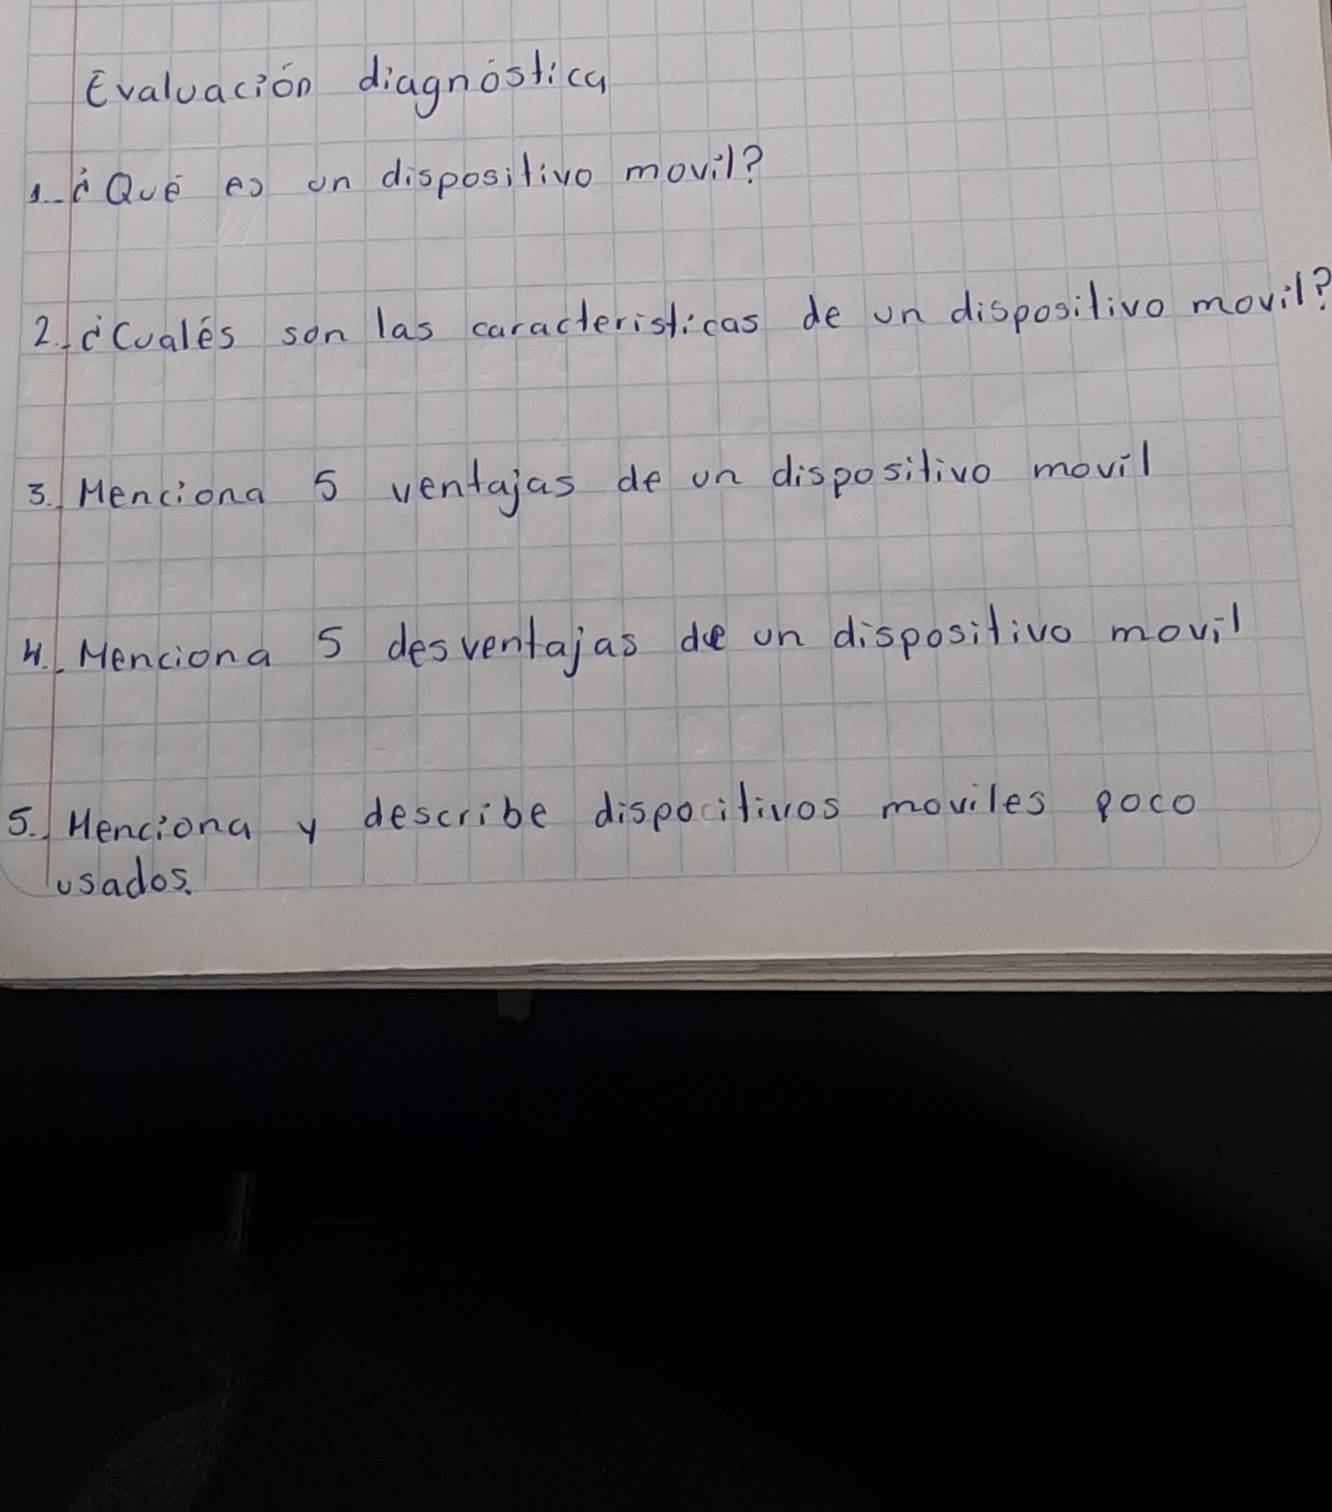 Evaluación diagnóstica
1.- ¿Qué es un dispositivo movil?
2.- ¿Cualés son las caracteristicas de un dispositivo movil?
3.- Menciona 5 ventajas de un dispositivo movil
4.- Menciona 5 desventajas de un dispositivo movil
5.- Menciona y describe dispocitivos moviles poco
usados.